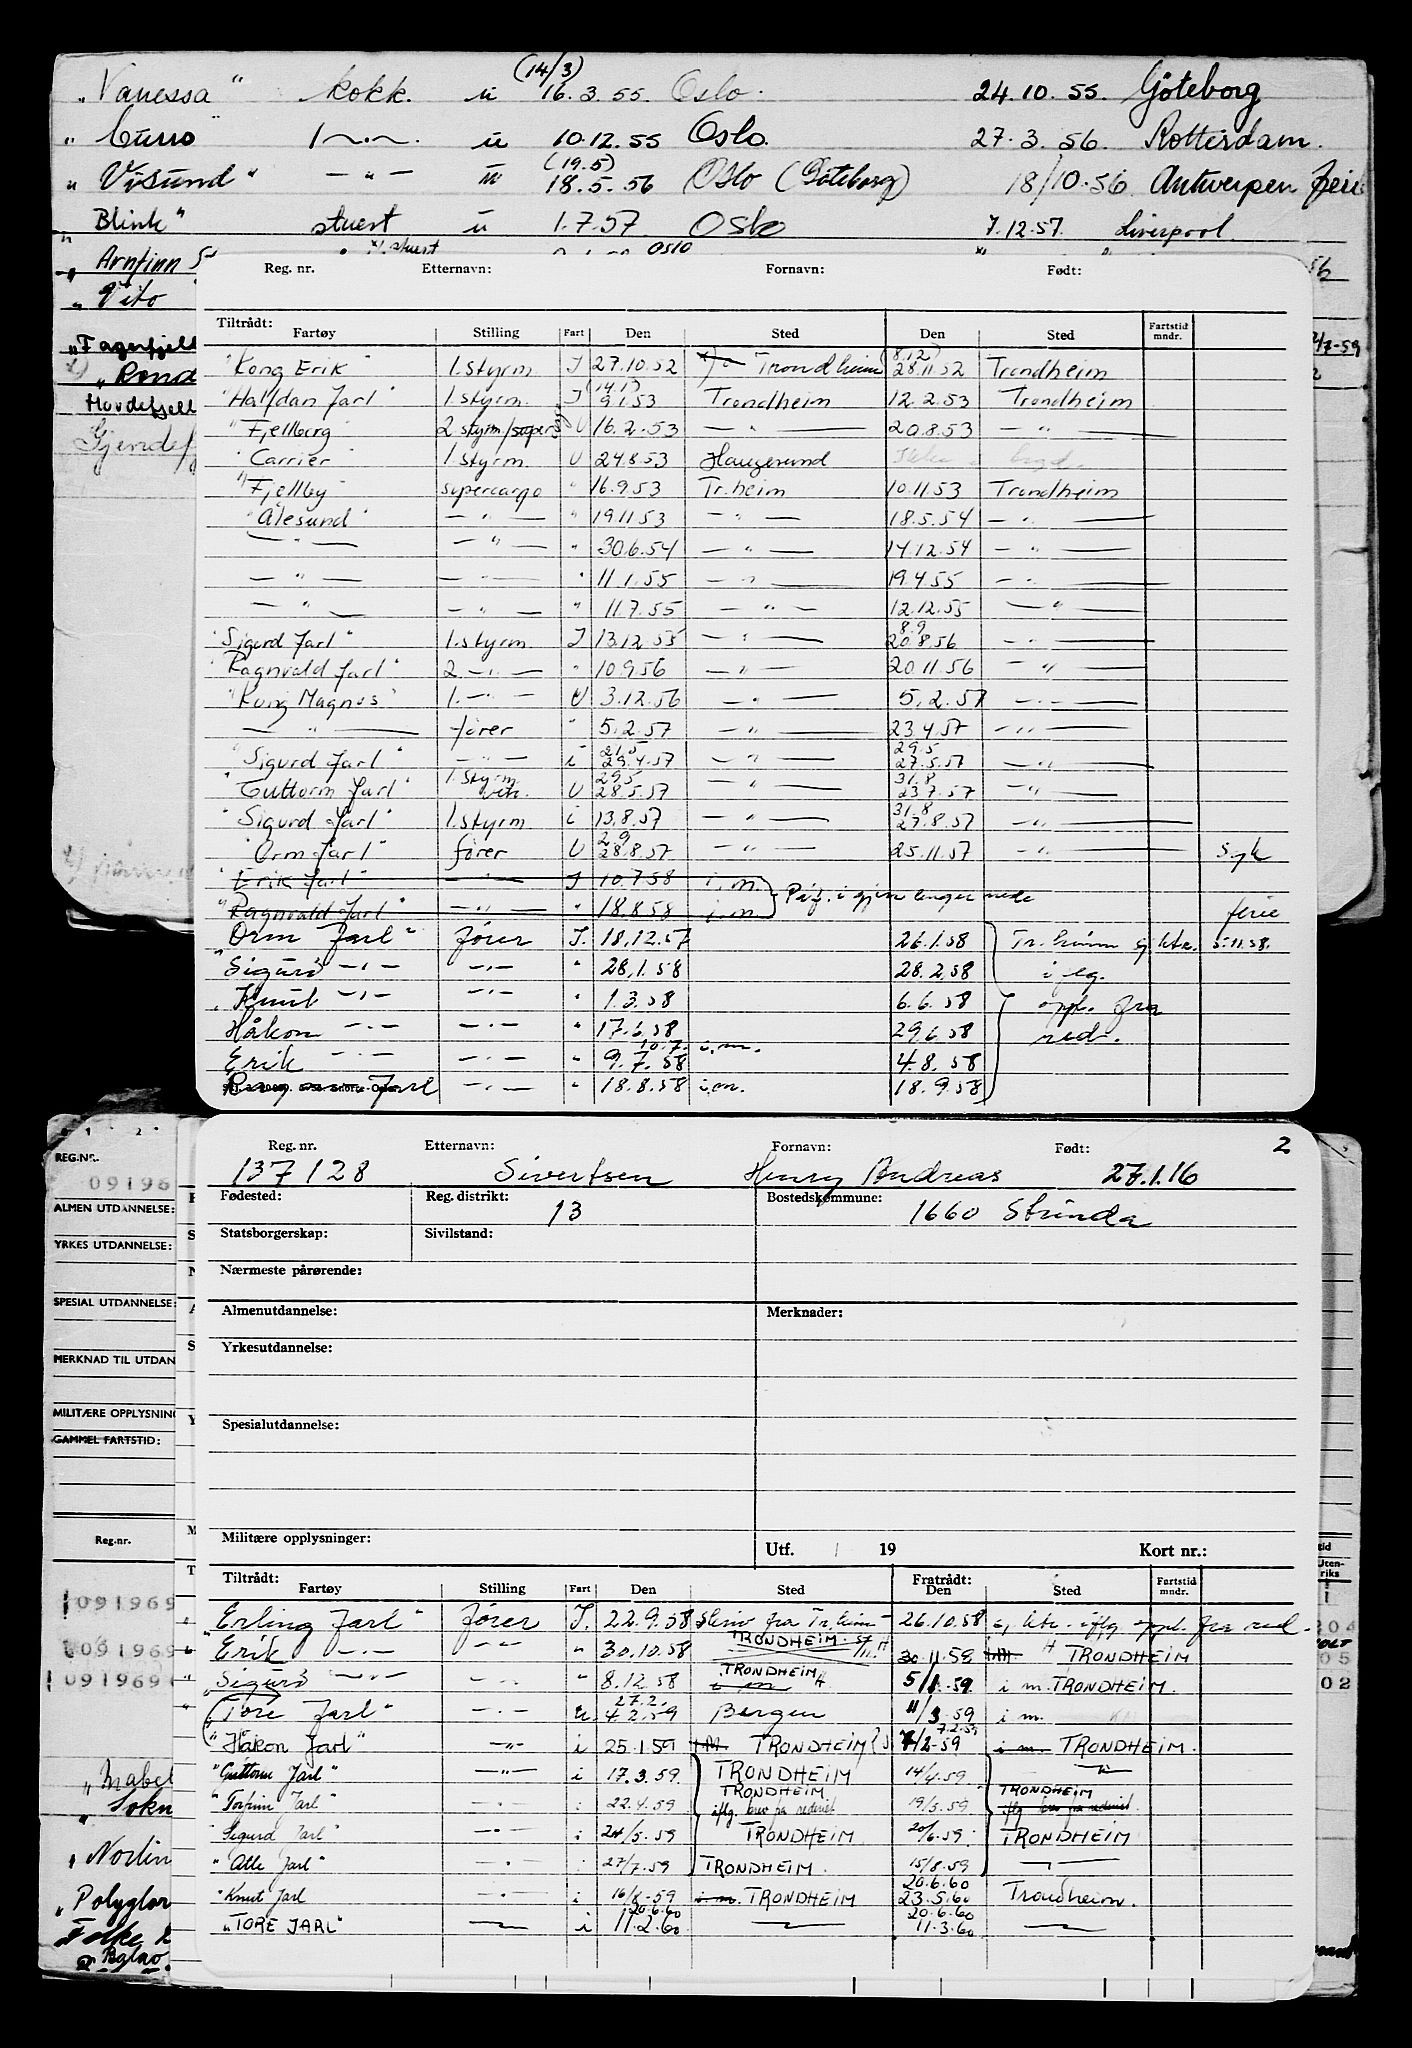 (14/3)
"Vanessa" kokk. u 16.3.55. Oslo. 24.10.55. Göteborg
" Curro " u 10.12.55 Oslo. 27.3.56. Rotterdam.
(19.5)
" Visund " — " — u 18.5.56 Oslo (Göteborg) 18/10.56 Antwerpen ferie
" Blink " stuert u 1.7.57. Oslo 7.12.57. Liverpool.
" Arnfinn S stuert Oslo
" Vito
"Fagerfjell 7-59
" Rond
Hovdefjell
Gjendef
Reg. nr. Etternavn: Fornavn: Født:
Tiltrådt: Fartøy Stilling Fart Den Sted Den Sted Fartstid mndr.
"Kong Erik" 1.styrm J 27.10.52 Trondheim (8.12) 28.11.52 Trondheim
"Halfdan Jarl" 1.styrm. J (14.1) 9.1.53 Trondheim 12.2.53 Trondheim
"Fjellberg" 2 styrm/super U 16.2.53 — " — 20.8.53 — " —
"Carrier" 1.styrm. U 24.8.53 Haugesund
"Fjellby" supercargo " 16.9.53 Tr.heim 10.11.53 Trondheim
"Ålesund" — " — " 19.11.53 — " — 18.5.54 — " —
— " — — " — " 30.6.54 — " — 14.12.54 — " —
— " — — " — " 11.1.55 — " — 19.4.55 — " —
— " — — " — " 11.7.55 — " — 12.12.55 — " —
"Sigurd Jarl" 1.styrm. J 13.12.55 — " — 8.9 20.8.56 — " —
"Ragnvald Jarl" 2. — " — " 10.9.56 — " — 20.11.56 — " —
"Kong Magnus" 1. — " — U 3.12.56 — " — 5.2.57 — " —
— " — fører " 5.2.57 — " — 23.4.57 — " —
"Sigurd Jarl" — " — i 21.5 29.4.57 — " — 29.5 27.5.57 — " —
"Guttorm Jarl" 1.styrm vik. U 29.5 28.5.57 — " — 31.8 23.7.57 — " —
"Sigurd Jarl" 1.styrm i 13.8.57 — " — 31.8 27.8.57 — " —
"Orm Jarl" fører U 2.9 28.8.57 — " — 25.11.57 — " — syk
"Erik Jarl" — " — J 10.7.58 i.m.
"Ragnvald Jarl" — " — " 18.8.58 i.m. Påf. i gjen lenger nede ferie
"Orm Jarl" fører J. 18.12.57 26.1.58 Tr.heim 5.11.58.
"Sigurd — " — — " — " 28.1.58 28.2.58 i flg.
"Knut — " — — " — " 1.3.58 6.6.58 oppl. fra
Håkon — " — — " — " 17.6.58 29.6.58 red.
Erik — " — — " — " 10.7. 9.7.58 i.m. 4.8.58
Jarl — " — " 18.8.58 i.m. 18.9.58
REG.NR. 09196
ALMEN UTDANNELSE:
YRKES UTDANNELSE:
SPESIAL UTDANNELSE:
MERKNAD TIL UTDAN
MILITÆRE OPPLYSNIN
GAMMEL FARTSTID:
Reg.nr.
091969
091969
091969
" Mabel
" Sokn
" Norlin
"Polyglor
Folke
Reg. nr. Etternavn: Fornavn: Født: 2
137128 Sivertsen Henry Andreas 27.1.16
Fødested: Reg. distrikt: Bostedskommune:
13 1660 Strinda
Statsborgerskap: Sivilstand:
Nærmeste pårørende:
Almenutdannelse: Merknader:
Yrkesutdannelse:
Spesialutdannelse:
Militære opplysninger:
Utf. 19 Kort nr.:
Tiltrådt: Fratrådt:
Fartøy Stilling Fart Den Sted Den Sted Fartstid mndr.
"Erling Jarl" fører J. 22.9.58 Skriv fra Tr.heim 26.10.58 iflg. oppl. fra red.
"Erik — " — — " — " 30.10.58 TRONDHEIM 30.11.58 TRONDHEIM
"Sigurd — " — — " — " 8.12.58 TRONDHEIM i m 5/1.59. i m. TRONDHEIM.
"Tore Jarl" — " — u 27.2. 4.2.59 Bergen 11/3.59 i m.
"Håkon Jarl" — " — i 25.1.59 TRONDHEIM 7.2.59 7/2-59 i m. TRONDHEIM.
"Guttorm Jarl" — " — i 17.3.59. TRONDHEIM 14/4.59. — " —
"Torfinn Jarl" — " — i 22.4.59 TRONDHEIM. iflg. brev fra rederiet 19/5.59 TRONDHEIM iflg brev fra rederiet.
"Sigurd Jarl" — " — i 24/5.59 TRONDHEIM 20/6.59. TRONDHEIM
"Atle Jarl" — " — i 27/7.59 TRONDHEIM. 15/8.59 — " —
"Knut Jarl — " — i 16/8-59 i m. TRONDHEIM 20.6.60 23.5.60 Trondheim.
"TORE JARL" — " — i 20.6.60 11.2.60 — " — 20.6.60 11.3.60 — " —